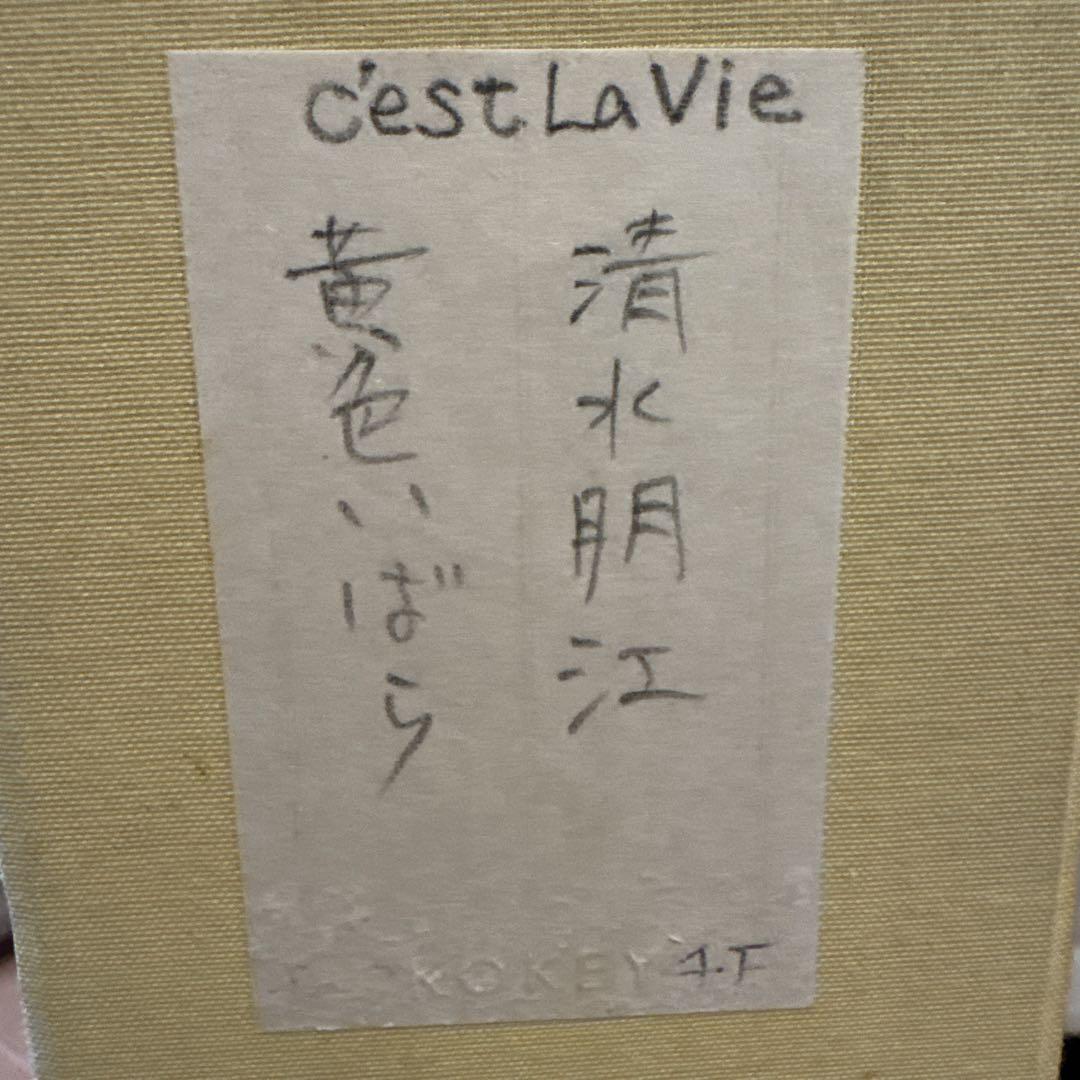 c'est La Vie
清水朋江
黄色いばら
KOKEY
4.F